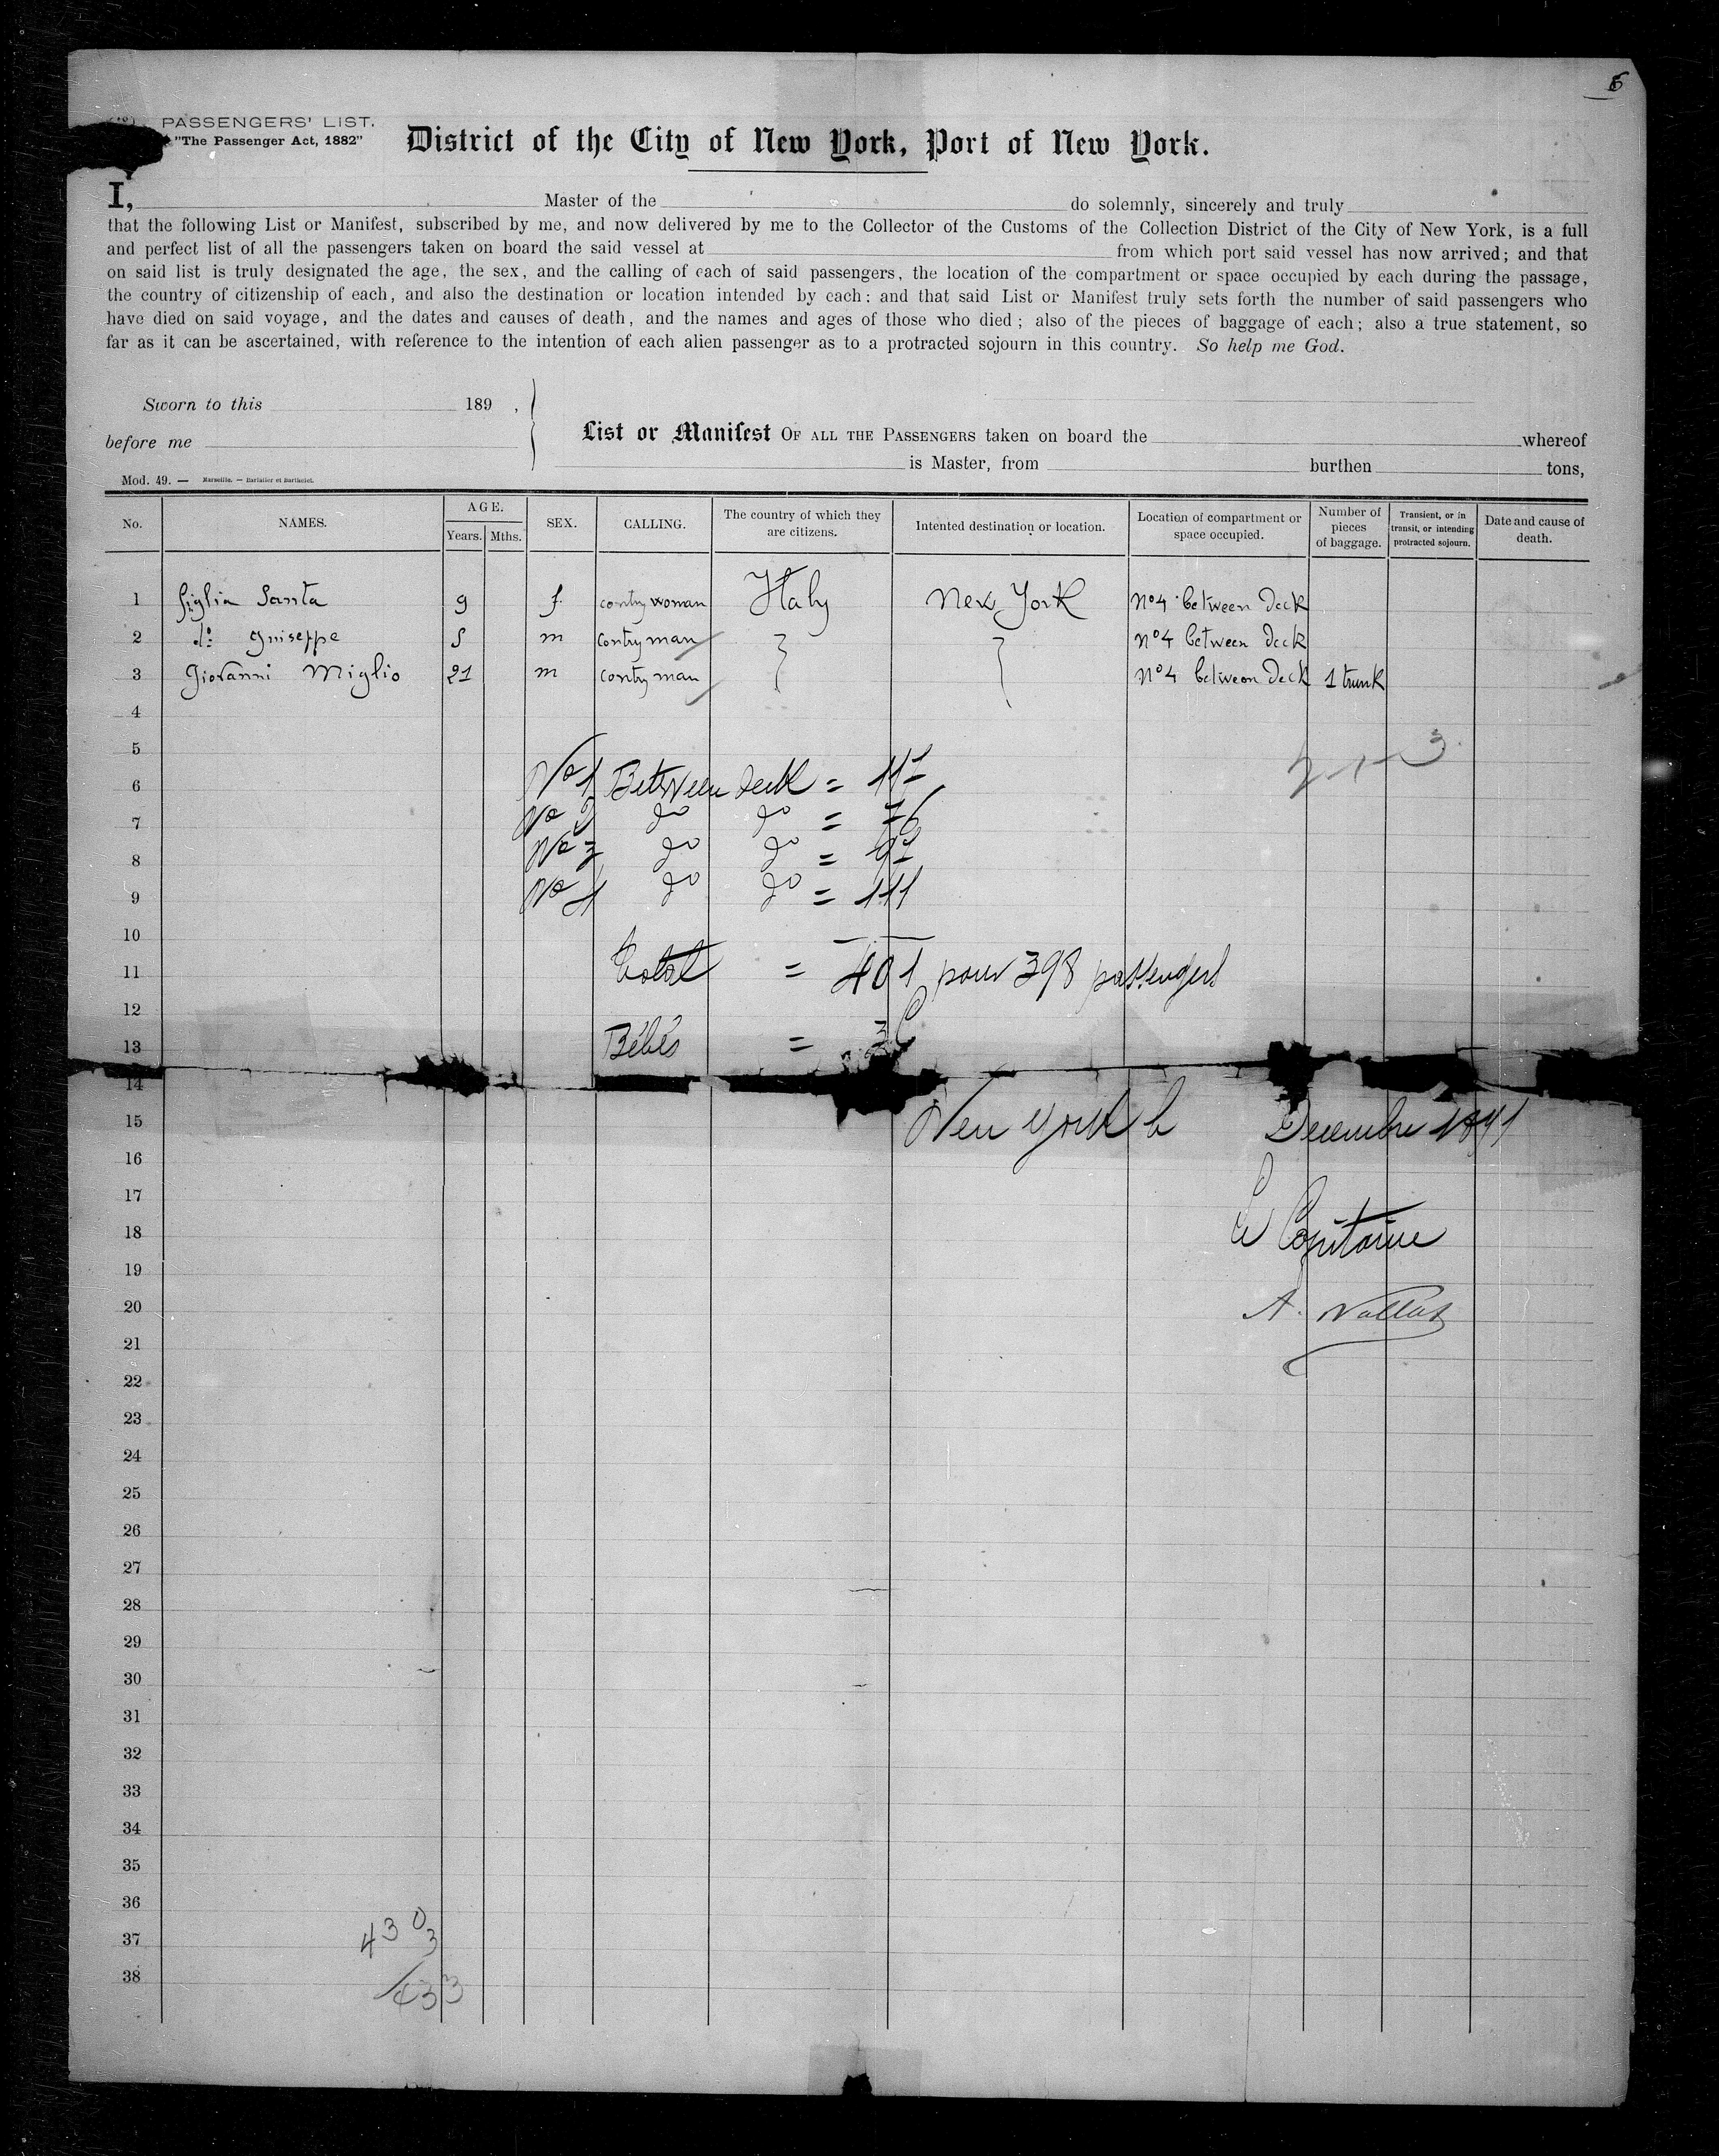 6
PASSENGERS' LIST.
"The Passenger Act, 1882"
District of the City of New York, Port of New York.
I, Master of the do solemnly, sincerely and truly
that the following List or Manifest, subscribed by me, and now delivered by me to the Collector of the Customs of the Collection District of the City of New York, is a full
and perfect list of all the passengers taken on board the said vessel at from which port said vessel has now arrived; and that
on said list is truly designated the age, the sex, and the calling of each of said passengers, the location of the compartment or space occupied by each during the passage,
the country of citizenship of each, and also the destination or location intended by each; and that said List or Manifest truly sets forth the number of said passengers who
have died on said voyage, and the dates and causes of death, and the names and ages of those who died; also of the pieces of baggage of each; also a true statement, so
far as it can be ascertained, with reference to the intention of each alien passenger as to a protracted sojourn in this country. So help me God.
Sworn to this 189 ,
before me
List or Manifest OF ALL THE PASSENGERS taken on board the whereof
is Master, from burthen tons,
Mod. 49. — Marseille. — Barlatier et Barthelet.
No. NAMES. AGE. Years. Mths. SEX. CALLING. The country of which they are citizens. Intented destination or location. Location of compartment or space occupied. Number of pieces of baggage. Transient, or in transit, or intending protracted sojourn. Date and cause of death.
1 figlia Santa 9 f. contry woman Italy New York No 4 between deck
2 do Guiseppe 5 m contry man No 4 between deck
3 Giovanni Miglio 21 m contry man No 4 between deck 1 trunk
4
5
6 No 1 Between deck =
7 No 2 do do = 76
8 No 3 do do =
9 No 4 do do = 111
10
11 Total = 401 pour 398 passengers
12
13 Bébés =
14
15 New York le Decembre 1891
16
17
18 Le Capitaine
19
20 A.
21
22
23
24
25
26
27
28
29
30
31
32
33
34
35
36
37 430 3
38 433